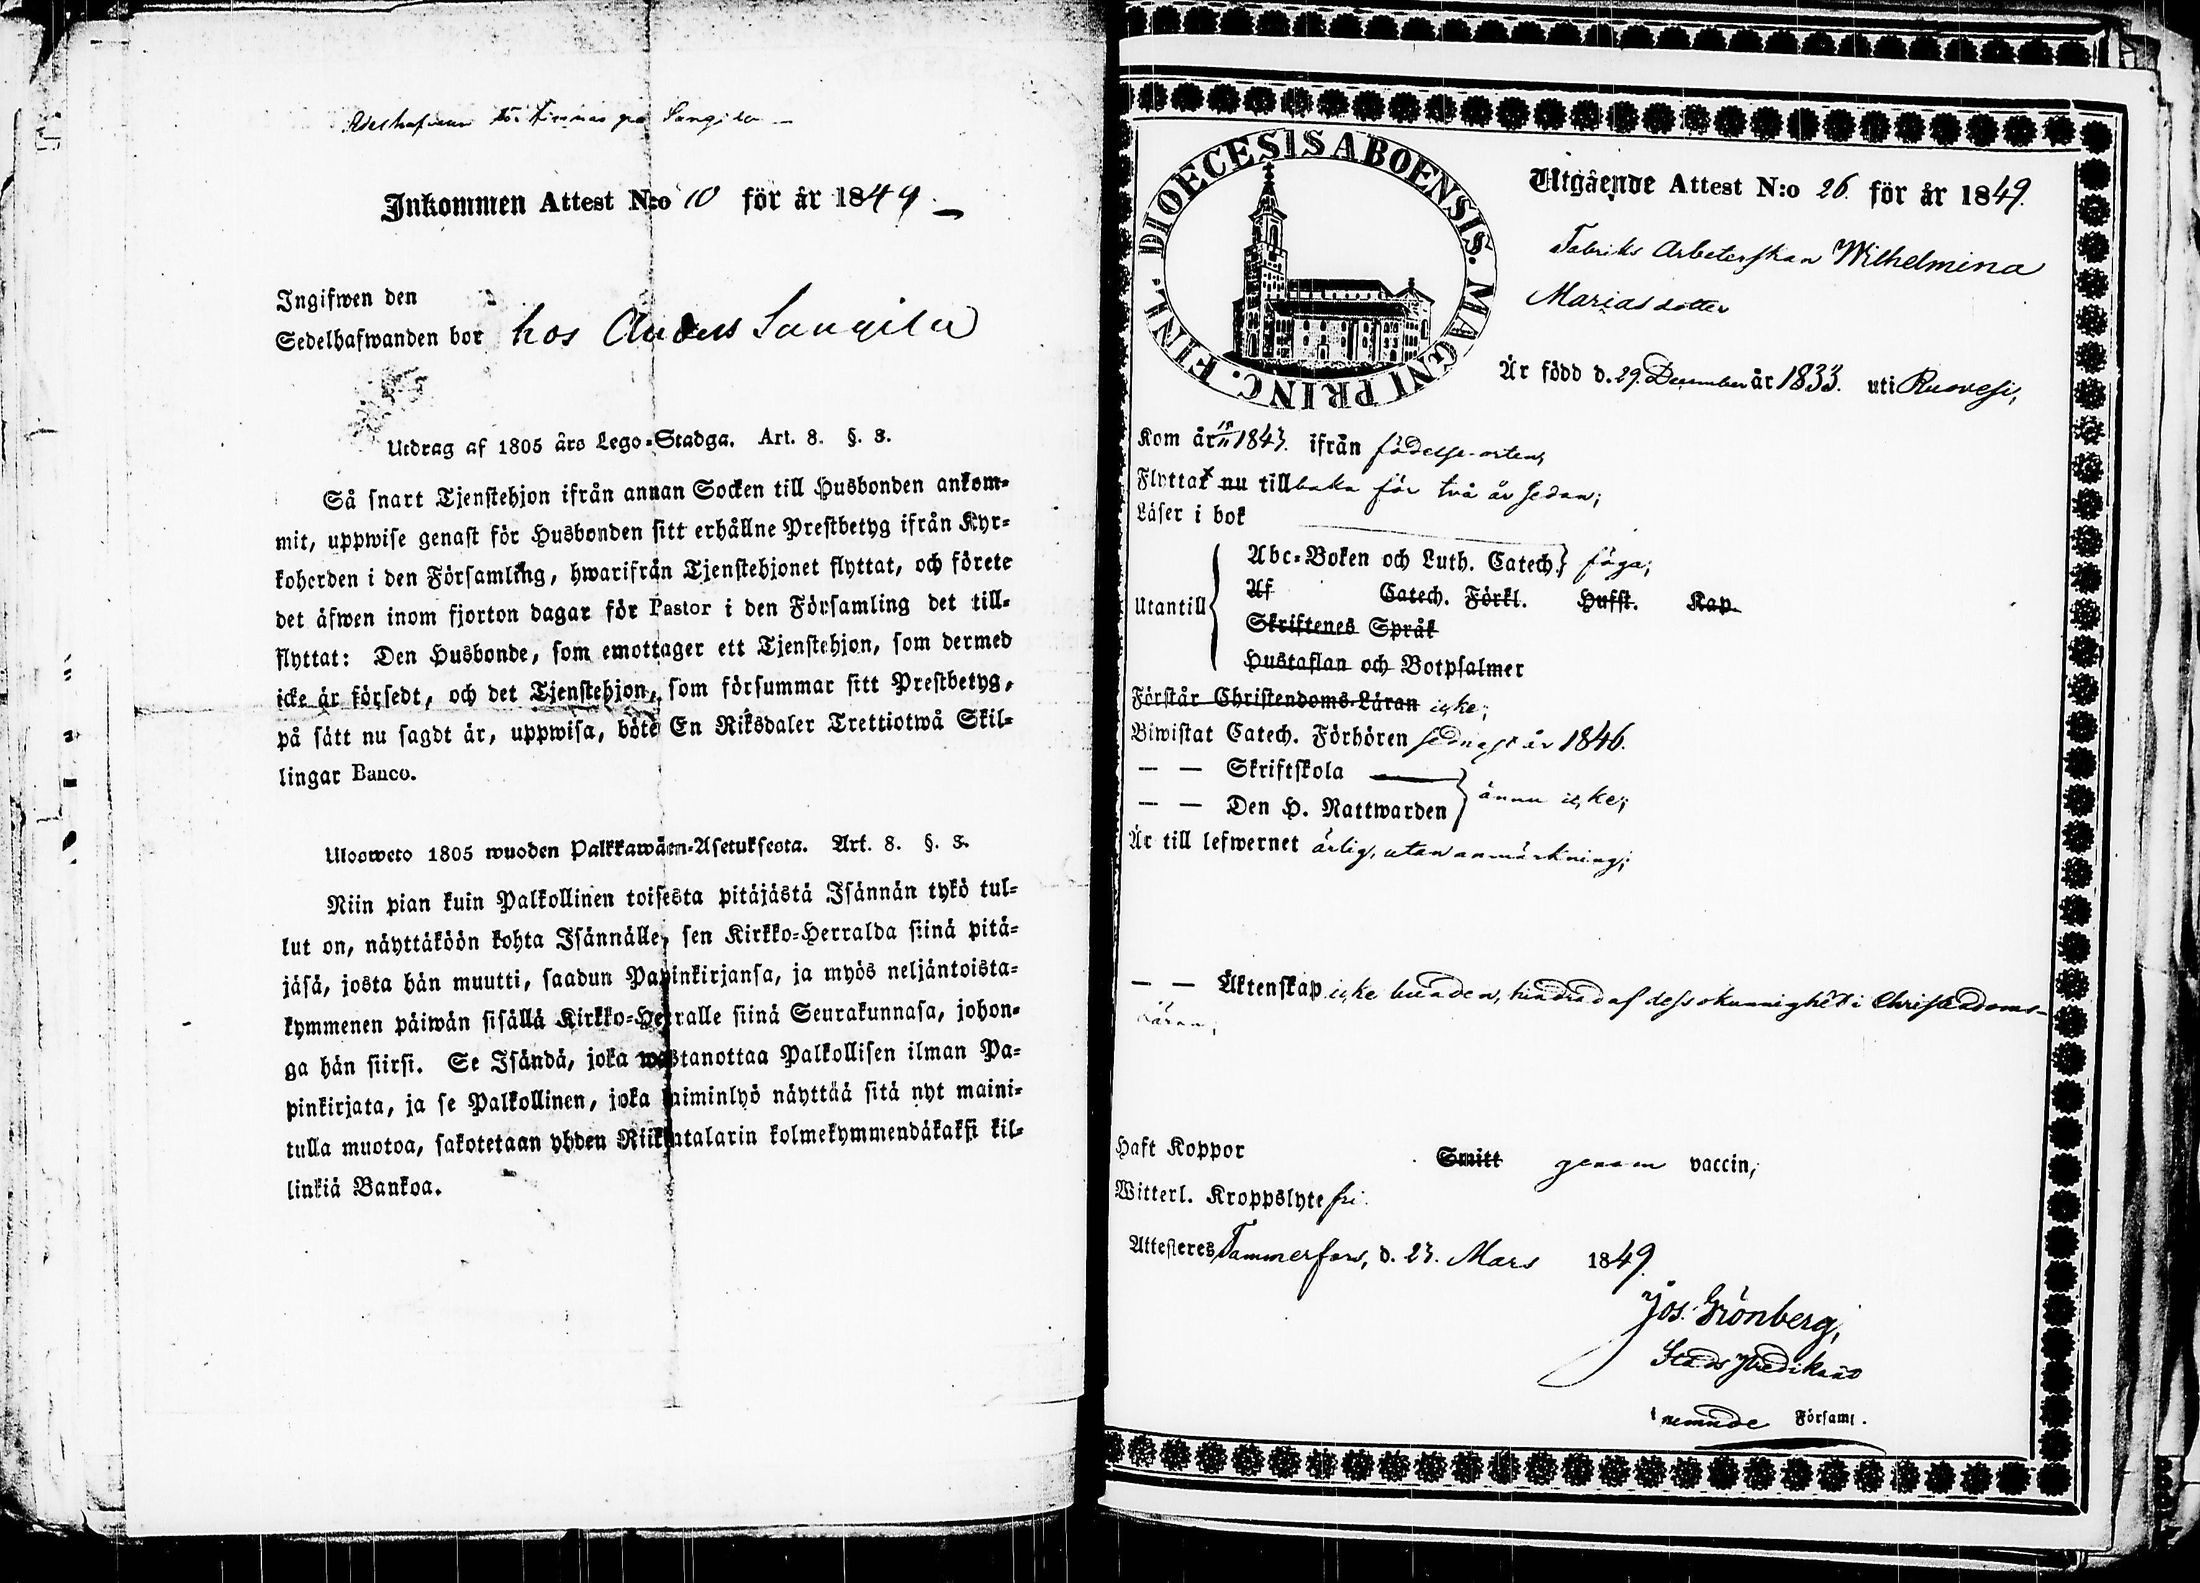 Inkommen Attest N:o 10 för år 1849
Ingifwen den
Sedelhafwanden bor hos Anders Sangila
Utdrag af 1805 års Lego-Stadga. Art. 8. §. 8.
Så snart Tjenstehjon ifrån annan Socken till Husbonden ankom-
mit, uppwise genast för Husbonden sitt erhållne Prestbetyg ifrån Kyr-
koherden i den Församling, hwarifrån Tjenstehjonet flyttat, och förete
det äfwen inom fjorton dagar för Pastor i den Församling det till-
flyttat: Den Husbonde, som emottager ett Tjenstehjon, som dermed
icke är försedt, och det Tjenstehjon, som försummar sitt Prestbetyg,
på sätt nu sagdt är, uppwisa, böte En Riksdaler Trettiotwå Skil-
lingar Banco.
Ulosweto 1805 wuoden Palkkawäen-Asetuksesta. Art. 8. §. 8.
Niin pian kuin Palkollinen toisesta pitäjästä Isännän tykö tul-
lut on, näyttäköön kohta Isännälle, sen Kirkko-Herralda siinä pitä-
jäsä, josta hän muutti, saadun Papinkirjansa, ja myös neljäntoista-
kymmenen päiwän sisällä Kirkko-Herralle siinä Seurakunnasa, johon-
ga hän siirsi. Se Isändä, joka wastanottaa Palkollisen ilman Pa-
pinkirjata, ja se Palkollinen, joka laiminlyö näyttää sitä nyt maini-
tulla muotoa, sakotetaan yhden Riikintalarin kolmekymmendäkaksi kil-
linkiä Bankoa.
DIOECESIS ABOENSIS. MAGNI PRINC. FINL.
Utgående Attest N:o 26 för år 1849.
Fabriks Arbeterskan Wilhelmina
Mariasdotter
Är född d. 29. December år 1833. uti Ruovesi,
Kom år 1843. ifrån födelse-orten,
Flyttat nu tillbaka för två år sedan;
Läser i bok
Utantill Abc-Boken och Luth. Catech. föga;
Af Catech. Förkl. Hufst. Kap.
Skriftenes Språk
Hustaflan och Botpsalmer
Förstår Christendoms-Läran icke;
Biwistat Catech. Förhören sednast år 1846.
— — Skriftskola
— — Den H. Nattwarden ännu icke;
Är till lefwernet ärlig, utan anmärkning;
— — Äktenskap icke bunden, hindrad af dess okunnighet i Christendoms-
Läran;
Haft Koppor Smitt genom vaccin;
Witterl. Kroppslyte fri.
Attesteres Tammerfors, d. 23. Mars 1849.
Jos. Grönberg,
Stads Predikant
i nemnde Församl.